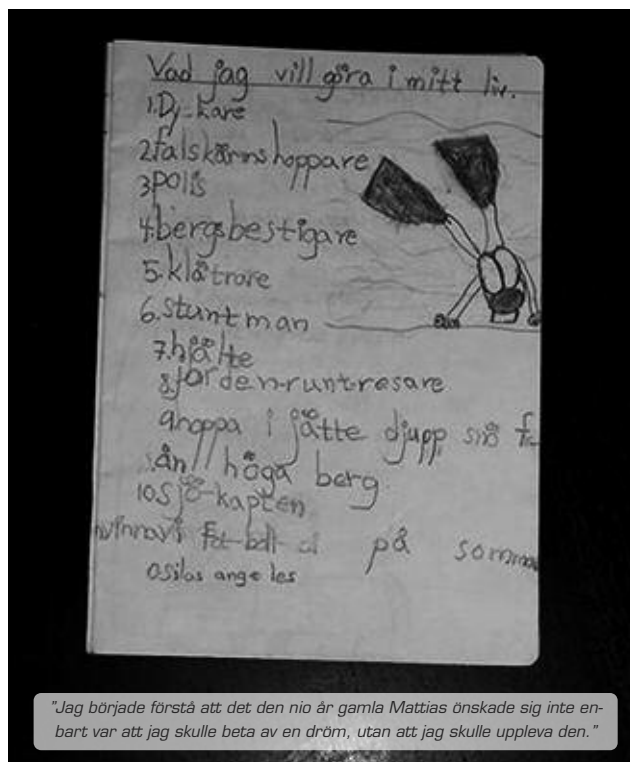 Vad jag vill göra i mitt liv.
1. Dj-kare
2. falskärmshoppare
3 polis
4. bergsbestigare
5. klåtrare
6. stuntman
7. hjälte
8. jorden-runt-resare
9. hoppa i jätte djupp snö
från höga berg
10. Sjö-kapten
på
os i los angeles
"Jag började förstå att det den nio år gamla Mattias önskade sig inte en-
bart var att jag skulle beta av en dröm, utan att jag skulle uppleva den."